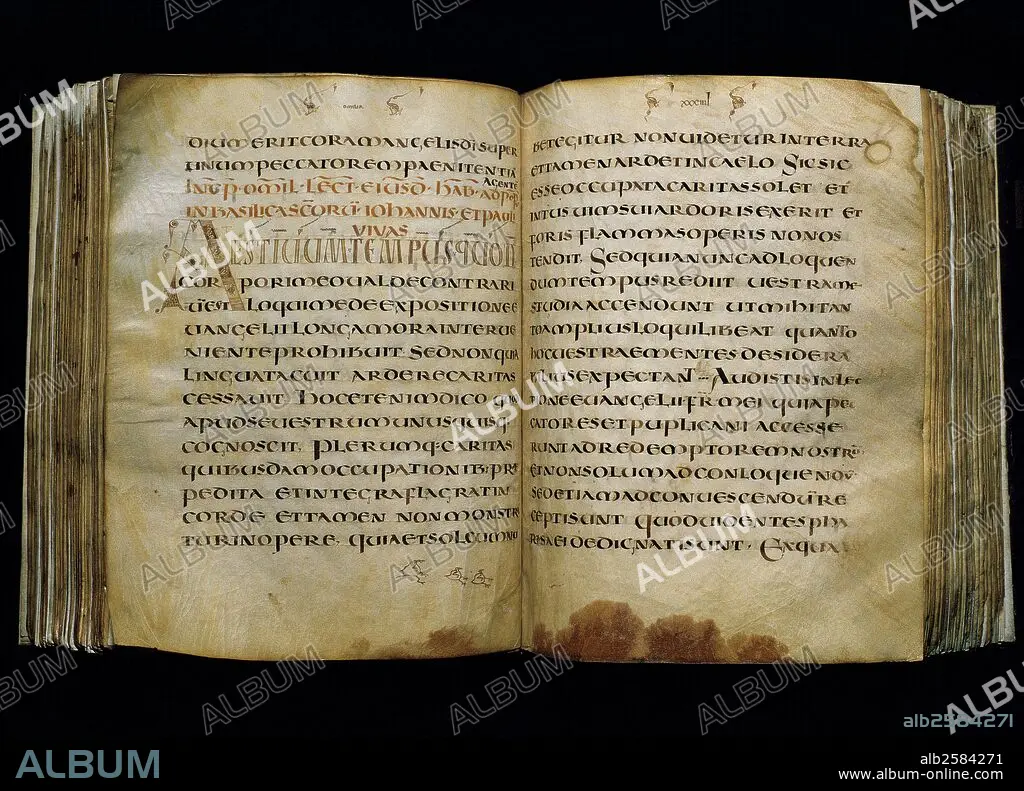 DIUM ERIT CORAM ANGELIS DI SUPER
UNUM PECCATOREM PAENITENTIĀ
AGENTE
IN BASILICA SCŌRŪ IOHANNIS ET PAULI
VIVAS
AESTIVUM TEMPUS QUOD
CORPORI MEO VALDE CONTRARI
UM EST LOQUI ME DE EXPOSITIONE E
UANGELII LONGA MORA INTERUE
NIENTE PROHIBUIT SED NON QUIA
LINGUA TACUIT ARDERE CARITAS
CESSAUIT HOC ETENIM DICO QUOD
APUD SE UESTRUM UNUSQUISQ
COGNOSCIT. PLERUMQ: CARITAS
QUIBUSDAM OCCUPATIONIB: PRAE
PEDITA ET INTEGRA FLAGRAT IN
CORDE ET TAMEN NON MONSTRA
TUR IN OPERE; QUIA ET SOL CUM NU
XXXIIII
BE TEGITUR NON UIDETUR IN TERRA
ET TAMEN ARDET IN CAELO SIC SIC
ESSE OCCUPATA CARITAS SOLET ET
INTUS UIM SUI ARDORIS EXERIT ET
FORIS FLAMMAS OPERIS NON OS
TENDIT. SED QUIA NUNC AD LOQUEN
DUM TEMPUS REDIIT UESTRA ME
STUDIA ACCENDUNT UT MIHI TAN
TO AMPLIUS LOQUI LIBEAT QUANTO
HOC UESTRAE MENTES DESIDERA
BILIUS EXPECTANT AUDISTIS IN LEC
TIONE EUANGELII FR MEI QUIA PEC
CATORES ET PUPLICANI ACCESSE
RUNT AD REDEMPTOREM NOSTRŪ
ET NON SOLUM AD CONLOQUENDŪ
SED ETIAM AD CONUESCENDŪ RE
CEPTI SUNT QUOD UIDENTES PHA
RISAEI DEDIGNATI SUNT. EX QUA
ALBUM
alb2584271
alb2584271
www.album-online.com